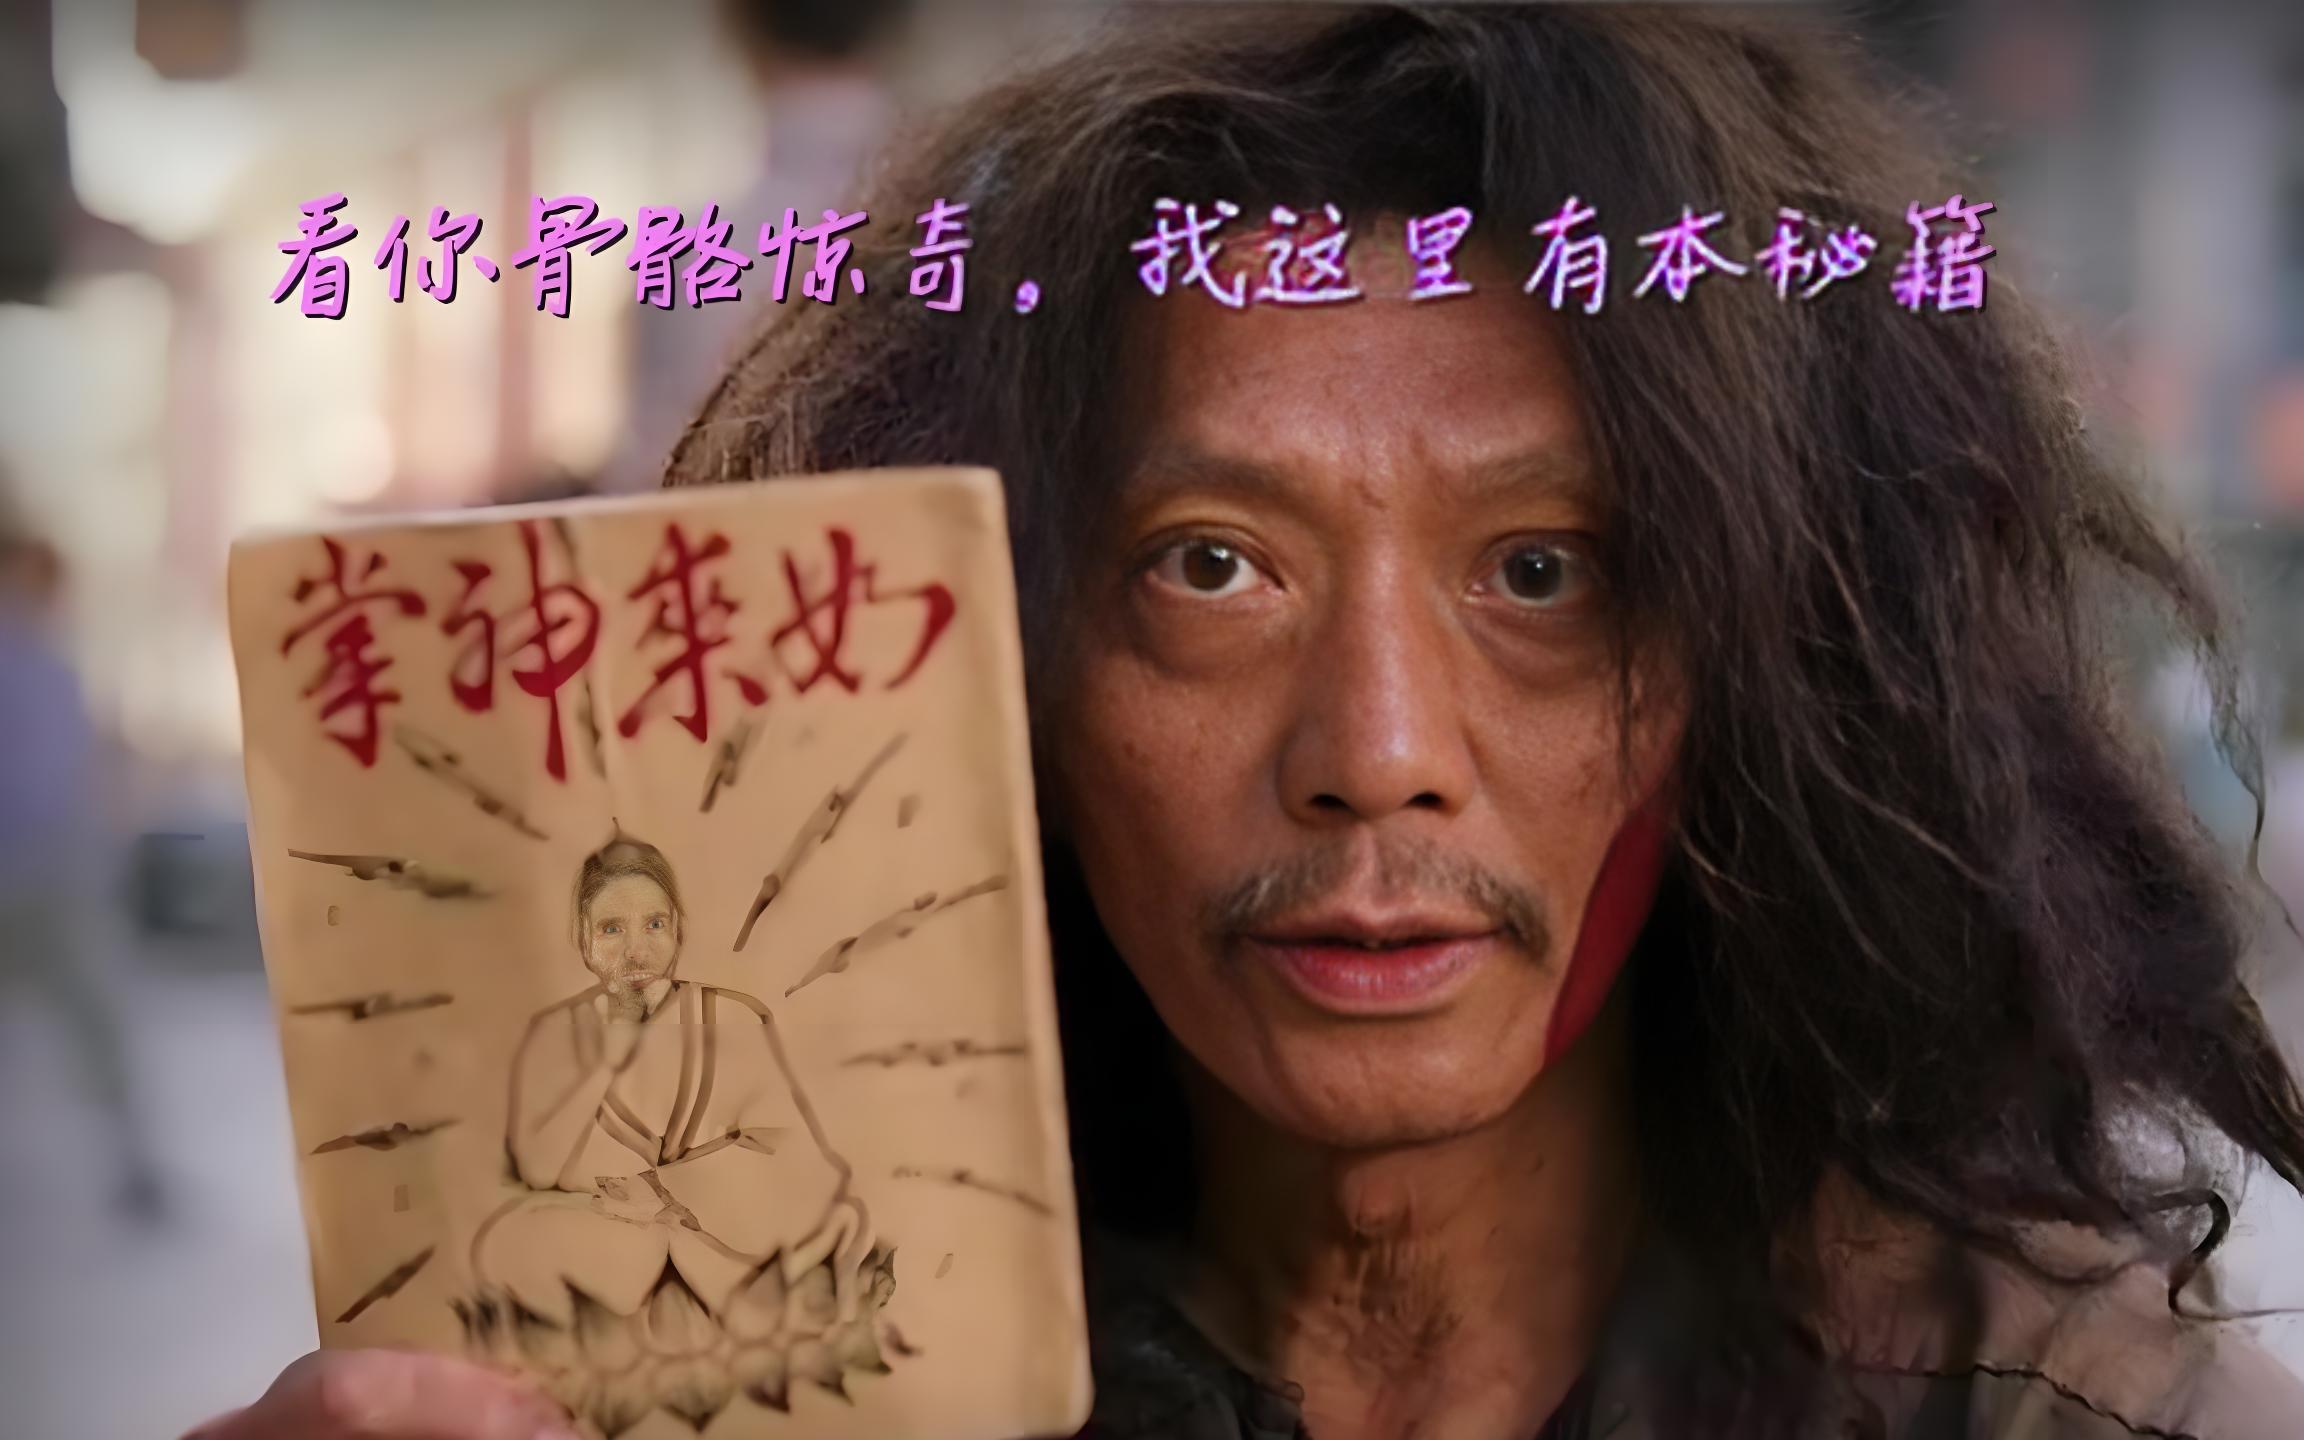 看你骨骼惊奇。我这里有本秘籍
如来神掌